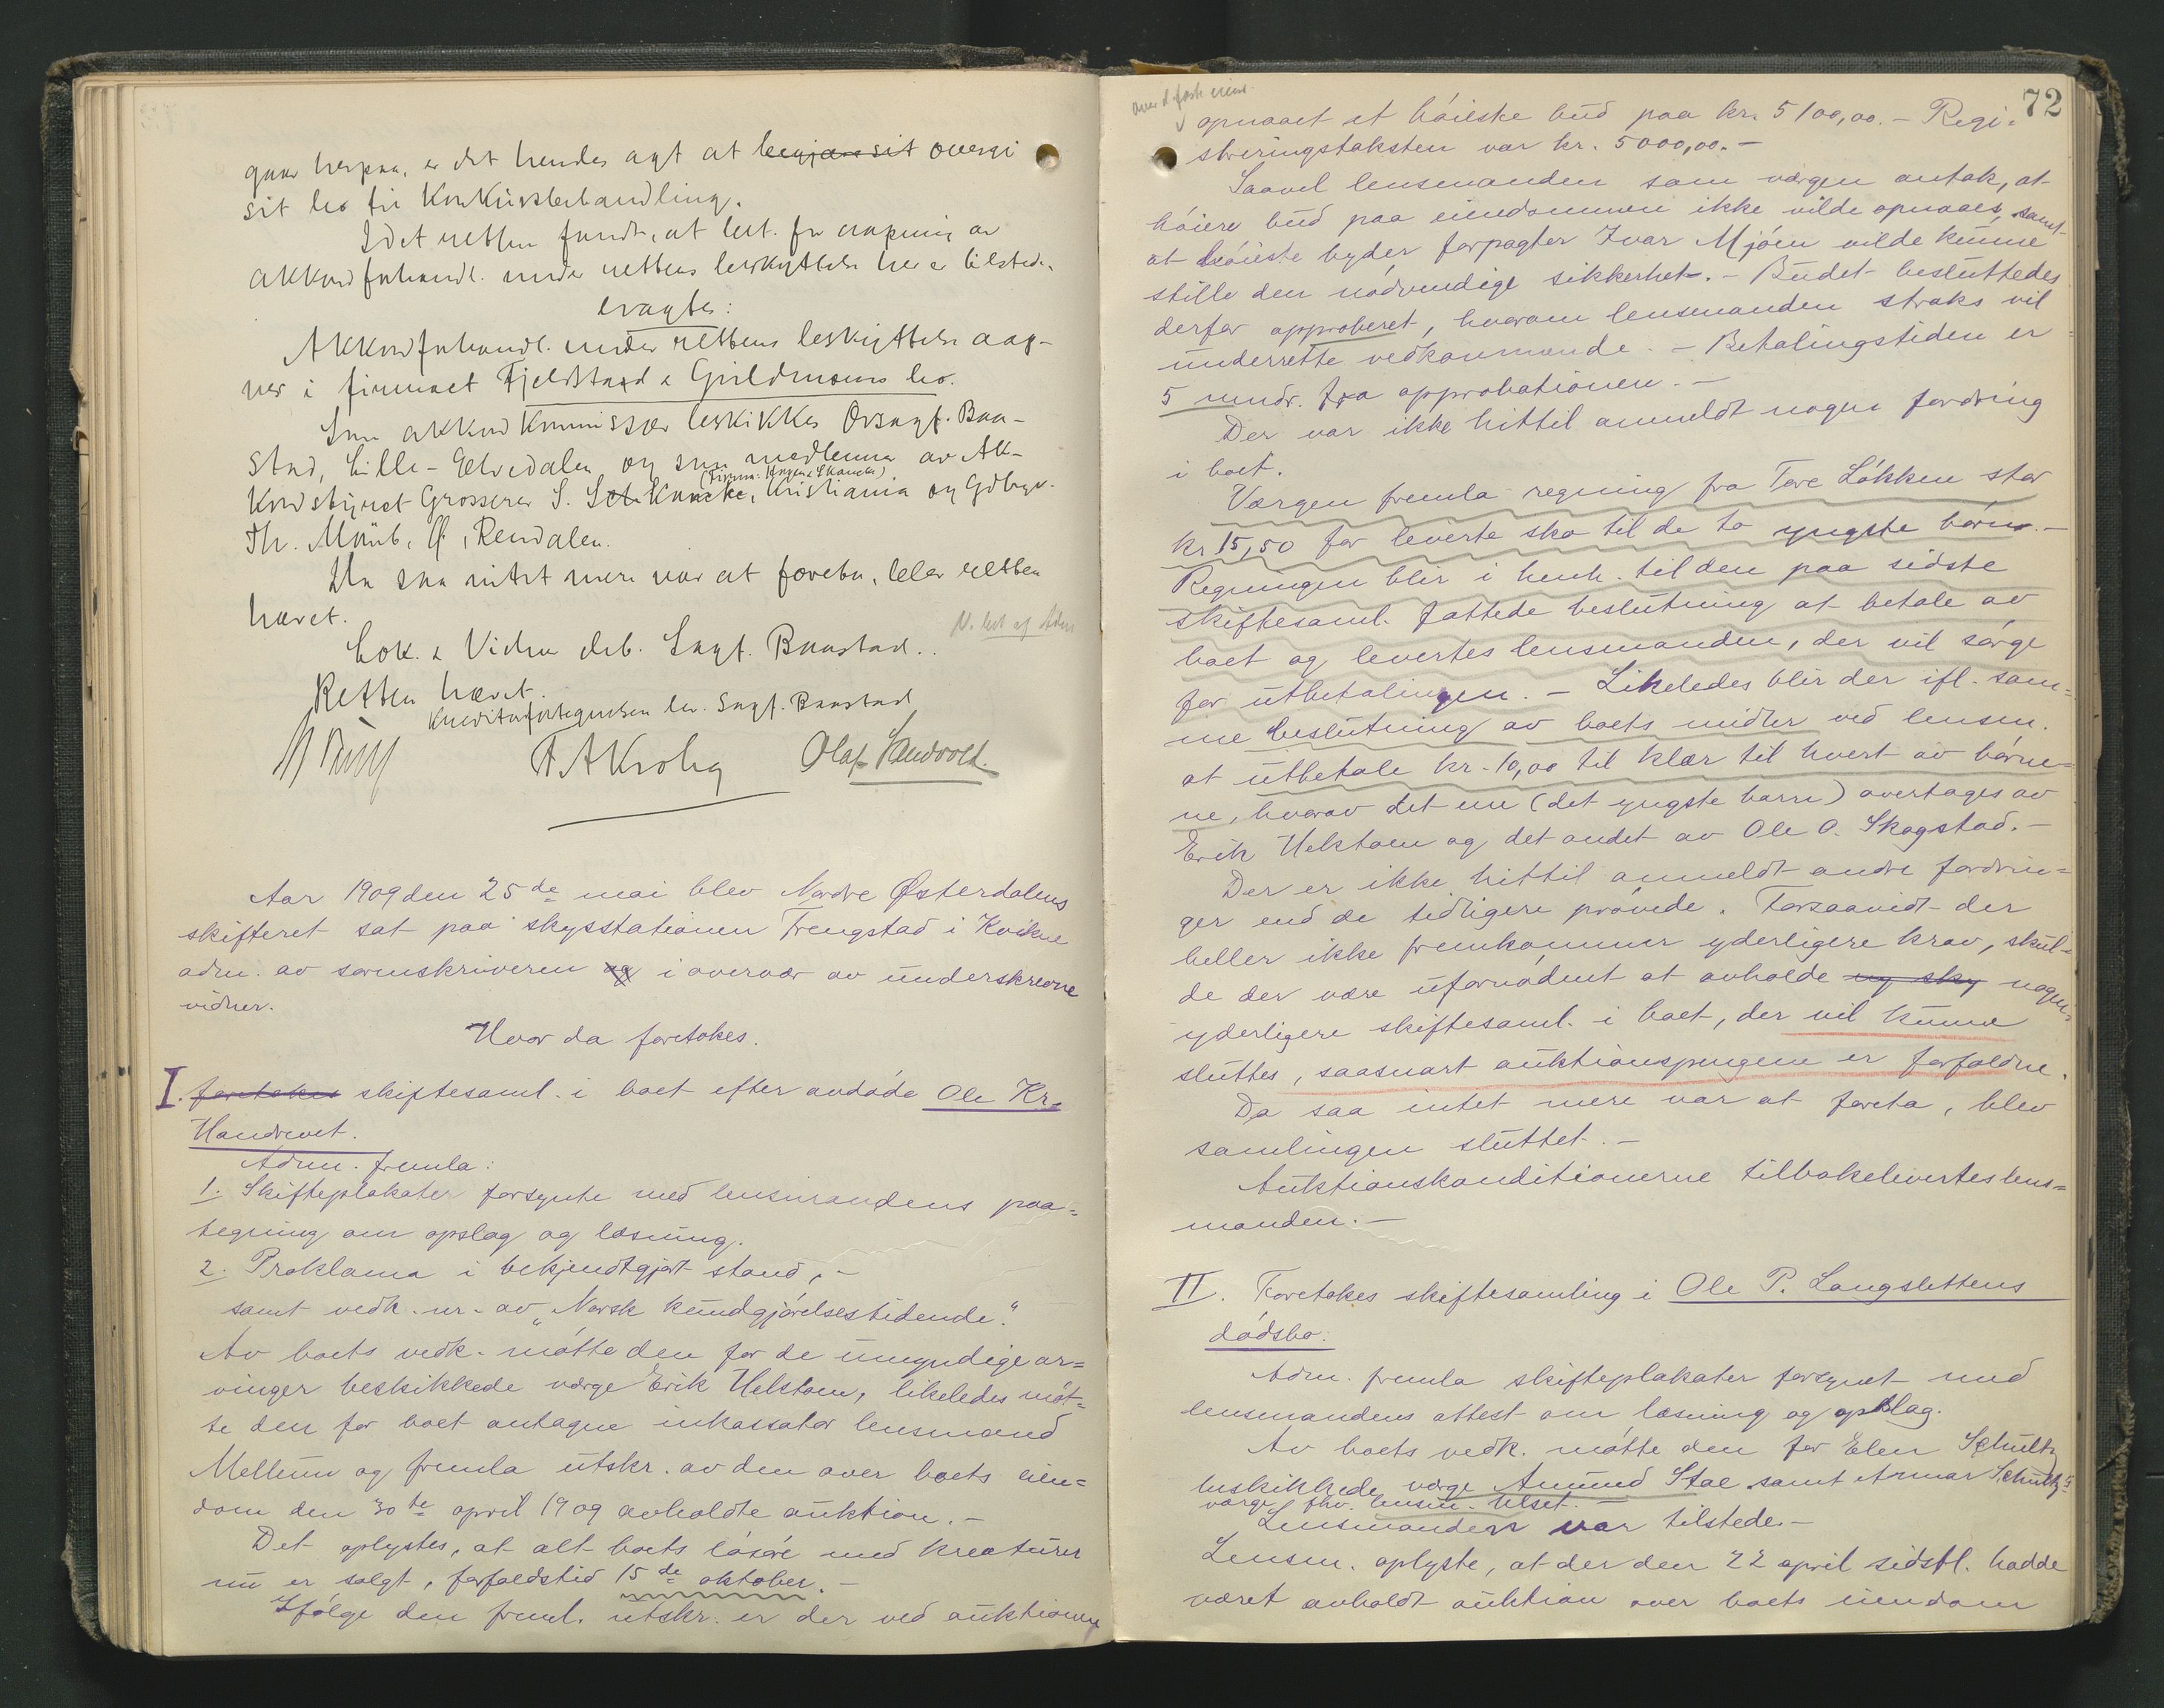 gaar herpaa, er det hendes agt at begjære sit overgi
sit bo til Konkursbehandling.
Idet retten fandt, at bet. for aapning av
akkordforhandl. under rettens beskyttelse her er tilstede,
eragtes:
Akkordforhandl. under rettens beskyttelse aap-
nes i firmaet Fjeldstad & Guldmouns bo.
Som akkordkommissær beskikkes Ovsagf. Baa-
stad, Lille-Elvedalen og som medlemmer av Ak-
kordstyret Grosserer S. Skancke, Kristiania og Gdbr.
Th. Mømb, Ø. Rendalen.
Da saa intet mere var at foreta, blev retten
hævet.
Lok. & Vidner deb. Sagf. Baastad.
Retten hævet.
Kreditorfortegnelsen lev. Sagf. Baastad
T. A. Krohg Olaf Sandvold.
Aar 1909 den 25de mai blev Nordre Østerdalens
skifteret sat paa skysstationen Frengstad i Kvikne
adm. av sorenskriveren og i overvær av underskrevne
vidner.
Hvor da foretokes.
I. foretokes skiftesaml. i boet efter avdøde Ole Kr.
Haudrevet.
Adm. fremla:
1. Skifteplakater forsynte med lensmandens paa=
tegning om opslag og læsning.
2. Proklama i bekjendtgjort stand, –
samt vedk. nr. av „Norsk kundgjørelsestidende".
Av boets vedk. møtte den for de umyndige ar=
vinger beskikkede værge Erik Uelstoen, likeledes møt=
te den for boet antagne inkassator lensmand
Mellum og fremla utskr. av den over boets eien=
dom den 30te april 1909 avholdte auktion. –
Det oplystes, at alt boets løsøre med kreaturer
nu er solgt, forfaldstid 15de oktober. –
Ifølge den freml. utskr. er der ved auktionen
72
opnaaet et høieste bud paa kr. 5100,00. – Regi=
streringstaksten var kr. 5000,00. –
Saavel lensmanden som værgen antok, at
høiere bud paa eiendommen ikke vilde opnaaes, samt
at høieste byder forpagter Ivar Mjøen vilde kunne
stille den nødvendige sikkerhet. – Budet besluttedes
derfor approberet, hvorom lensmanden straks vil
underrette vedkommende. – Betalingstiden er
5 mndr. fra approbationen. –
Der var ikke hittil anmeldt nogen fordring
i boet.
Værgen fremla regning fra Tore Løkken stor
kr 15,50 for leverte sko til de to yngste børn. –
Regningen blir i henh. til den paa sidste
skiftesaml. fattede beslutning at betale av
boet og levertes lensmanden, der vil sørge
for utbetalingen. – Likeledes blir der ifl. sam=
me beslutning av boets midler ved lensm.
at utbetale kr. 10,00 til klær til hvert av børne=
ne, hvorav det ene (det yngste barn) overtages av
Erik Uelstoen og det andet av Ole O. Skogstad. –
Der er ikke hittil anmeldt andre fordrin=
ger end de tidligere prøvede. Forsaavidt der
heller ikke fremkommer yderligere krav, skul=
de der være ufornødent at avholde ny sky nogen
yderligere skiftesaml. i boet, der vil kunne
sluttes, saasnart auktionspengene er forfaldne.
Da saa intet mere var at foreta, blev
samlingen sluttet. –
Auktionskonditionerne tilbakelevertes lens=
manden. –
II. Foretokes skiftesamling i Ole P. Langslettens
dødsbo.
Adm. fremla skifteplakater forsynet med
lensmandens attest om læsning og opslag.
Av boets vedk. møtte den for Elen Schultz
beskikkede værge Amund Stae samt Schultz's
værge fhv. lensm. Ulset. –
Lensmanden var tilstede. –
Lensm. oplyste, at der den 22 april sidstl. hadde
været avholdt auktion over boets eiendom